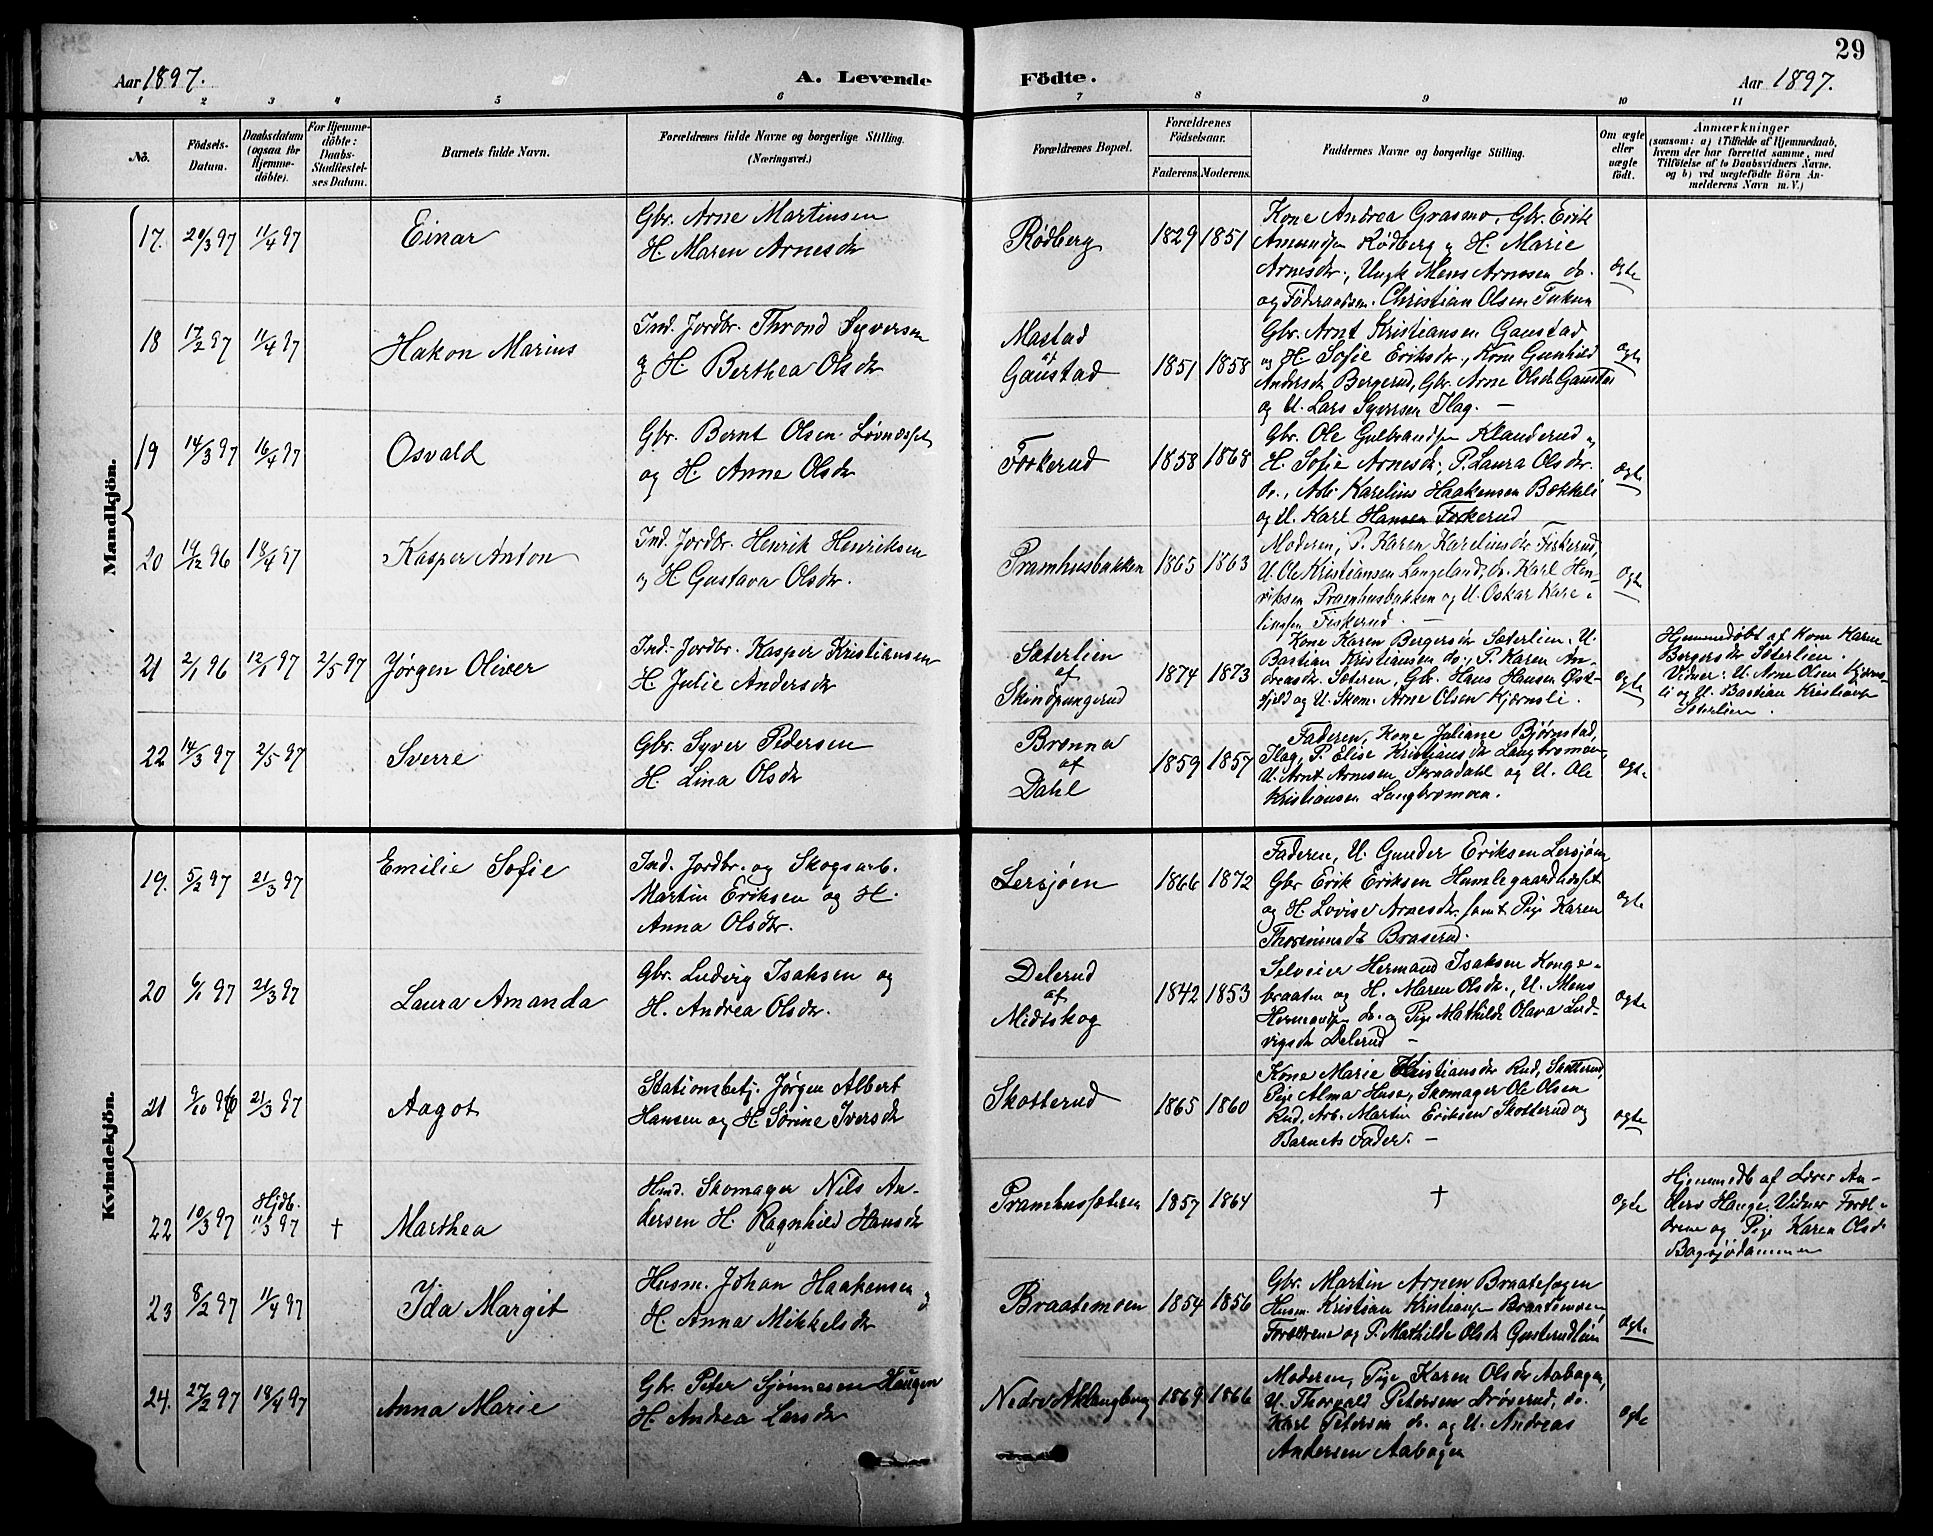 29
Aar 1897.
A. Levende
Födte.
Aar 1897.
1 2 3 4 5 6 7 8 9 10 11
No.
Födsels-
Datum.
Daabsdatum
(ogsaa for
Hjemme-
döbte).
For Hjemme-
döbte:
Daabs-
Stadfæstel-
ses Datum.
Barnets fulde Navn.
Forældrenes fulde Navne og borgerlige Stilling.
(Næringsvei.)
Forældrenes Bopæl.
Forældrenes
Födselsaar.
Faderens. Moderens.
Faddernes Navne og borgerlige Stilling.
Om ægte
eller
uægte
født.
Anmærkninger
(saasom: a) i Tilfælde af Hjemmedaab,
hvem der har forrettet samme, med
Tilföielse af to Daabsvidners Navne.
og b) ved uægtefödte Börn An-
melderens Navn m. V.)
Mandkjön.
17. 20/3 97 11/4 97
Einar
Gbr. Arne Martinsen
H. Maren Arnesdr
Rødberg
1829 1851
Kone Andrea Grasmo, Gbr. Erik
Amundsen Rødberg og H. Marie
Arnesdr., Ungk. Mons Arnesen do.
og Føderaadsm. Christian Olsen
ægte
18 17/2 97 11/4 97
Hakon Marius
Ind. Jordbr. Thrond Syversen
og H. Berthea Olsdr
Mastad
af
Gaustad
1851 1858
Gbr. Arnt Kristiansen Gaustad
og H. Sofie Eriksdr., Kone Gunhild
Andersdr Bergerud, Gbr. Arne Olsen Gaustad
og U. Lars Syversen Flag. —
ægte
19 14/3 97 16/4 97
Osvald
Gbr. Bernt Olsen Løvnæsset
og H. Anne Olsdr
Foskerud
1858 1868
Gbr. Ole Gulbrandsen Klanderud og
H. Sofie Arnesdr., P. Laura Olsdr.
do., Arb. Karelius Haakensen Bækkeli
og U. Karl Hansen Foskerud
ægte
20 19/12 96 18/4 97
Kasper Anton
Ind. Jordbr. Henrik Henriksen
og H Gustava Olsdr.
Pramhusbakken
1865 1863
Moderen, P. Karen Kareliusdr Fiskerud,
U. Ole Kristiansen Langeland, do. Karl Hen-
riksen Pramhusbakken og U. Oskar Kare-
liussen Fiskerud. —
ægte
21 2/11 96 12/1 97 2/5 97
Jørgen Oliver
Ind. Jordbr. Kasper Kristiansen
H. Julie Andersdr
Sæterlien
af
Skindpungerud
1874 1873
Kone Karen Bergersdr Sæterlien, U.
Bastian Kristiansen do., P. Karen An-
dreasdr. Sæteren, Gbr. Hans Hansen Øst-
fjeld og U. Skom. Arne Olsen Kjærnsli.
ægte
Hjemmedøbt af Kone Karen
Bergersdr Sæterlien.
Vidner: U. Arne Olsen Kjerns-
li og U. Bastian Kristiansen
Sæterlien.
22 14/3 97 2/5 97
Sverre
Gbr. Syver Pedersen
H. Lina Olsdr
Brenna
af
Dahl
1859 1857
Faderen, Kone Juliane Bjørnstad,
Flag, P. Elise Kristiansdr Langbromoen,
U. Arnt Arnesen Skraadahl og U. Ole
Kristiansen Langbromoen.
ægte
Kvindekjön.
19. 5/2 97 21/3 97
Emilie Sofie
Ind. Jordbr. og Skogsarb.
Martin Eriksen og H.
Anna Olsdr.
Lersjøen
1866 1872
Faderen, U. Gunder Eriksen Lersjøen,
Gbr Erik Eriksen Humlegaardsæset
og H. Lovise Arnesdr. samt Pige Karen
Braserud.
ægte
20 6/1 97 21/3 97
Laura Amanda
Gbr. Ludvig Isaksen og
H. Andrea Olsdr.
Delerud
af
Midtskog
1842 1853
Selveier Hermand Isaksen Konge-
braaten og H. Maren Olsdr., U. Mons
Hermansen do. og Pige Mathilde Olava Lud-
vigsdr Delerud —
ægte
21 9/10 96 21/3 97
Aagot
Stationsbetj. Jørgen Albert
Hansen og H. Sørine Iversdr
Skotterud
1865 1860
Kone Marie Kristiansdr Rud, Skotterud,
Pige Alma Huse, Skomager Ole Olsen
Rud, Arb. Martin Eriksen Skotterud og
Barnets Fader. —
ægte
22 10/3 97 Hjdb.
11/3 97 †
Marthea
Hmd. Skomager Nils An-
dersen H. Ragnhild Hansdr
Pramhussæteren
1857 1864
†
ægte
Hjemmedb af Lærer An-
ders Hauge. Vidner Foræl-
drene og Pige Karen Olsdr
Bagsjødammen
23 8/2 97 11/4 97
Ida Margit
Husm. Johan Haakensen og
H. Anna Mikkelsdr
Braatemoen
1854 1856
Gbr. Martin Arnesen Braatesagen
Husm. Kristian Kristiansen Braatemoen,
Forældrene og P. Mathilde Olsdr Gusterudlien
ægte
24. 27/2 97 18/4 97
Anna Marie
Gbr. Peter Sjønnesen Haugen
H. Andrea Larsdr
Nedre Aklangberg
1869 1866
Moderen, Pige Karen Olsdr Aabogen,
U. Thorvald Petersen Drøverud, do.
Karl Petersen do. og U. Andreas
Andersen Aabogen
ægte